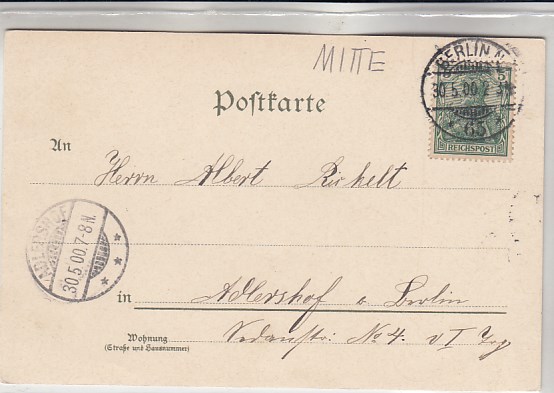 MITTE
BERLIN N.
30.5.00.7
65
5
REICHSPOST
Postkarte
An
Herrn Albert Richelt
ADLERSHOF
30.5.00.7-8N.
in
Adlershof a. Berlin
Wohnung
(Straße und Hausnummer)
Sedanstr. No 4. v I Trg